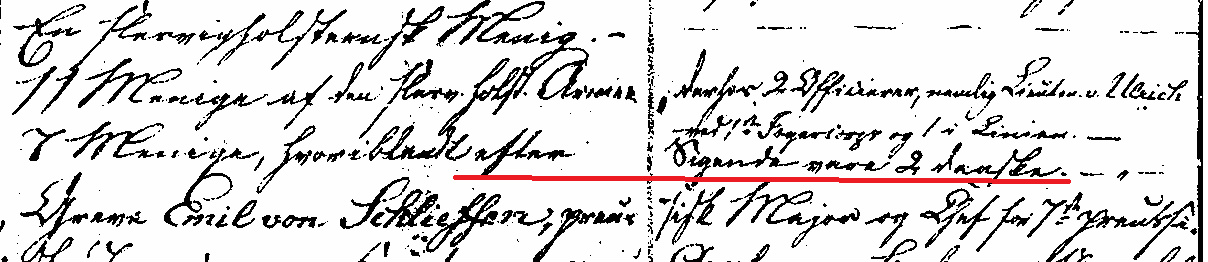 En slesvigholstensk Menig. –
11 Menige af den slesv. holst. Armee, derhos 2 Officierer, nemlig Lieuten. v. Ulrich
ved 1ste Jægercorps og 1 i Linien. —
7 Menige, hvoriblandt efter Sigende være 2 danske. — „ —
Greve Emil von Schlieffen, preus- sisk Major og Chef for 7de preussi-